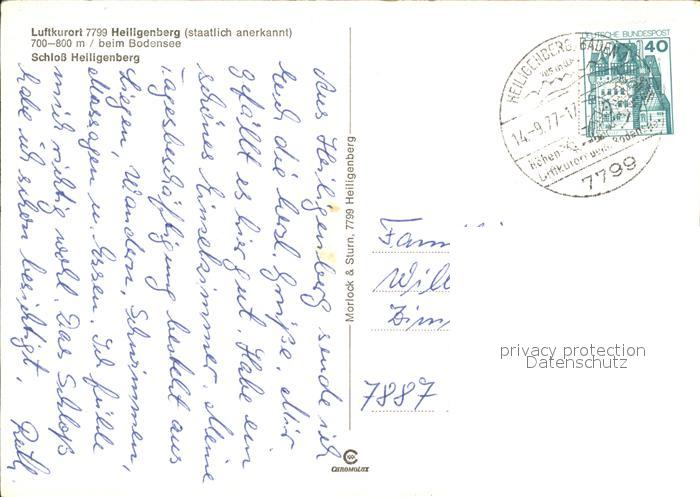 Luftkurort 7799 Heiligenberg (staatlich anerkannt)
700–800 m / beim Bodensee
Schloß Heiligenberg
Aus Heiligenberg sende ich
Euch die herzl. Grüße. Mir
gefällt es hier gut. Habe ein
schönes Einzelzimmer. Meine
Tagesbeschäftigung besteht aus
Liegen, Wandern, Schwimmen,
Massagen u. Essen. Ich fühle
mich richtig wohl. Das Schloß
habe ich schon besichtigt.
Morlock & Sturn, 7799 Heiligenberg
CHROMOLUX
DEUTSCHE BUNDESPOST
40
HEILIGENBERG, BADEN
14.-9.77-17
Luftkurort beim Bodensee
7799
Fam
Will
Zim
7887
privacy protection
Datenschutz